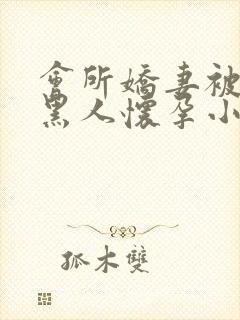 會所嬌妻被
黑人懷孕小
孤木雙